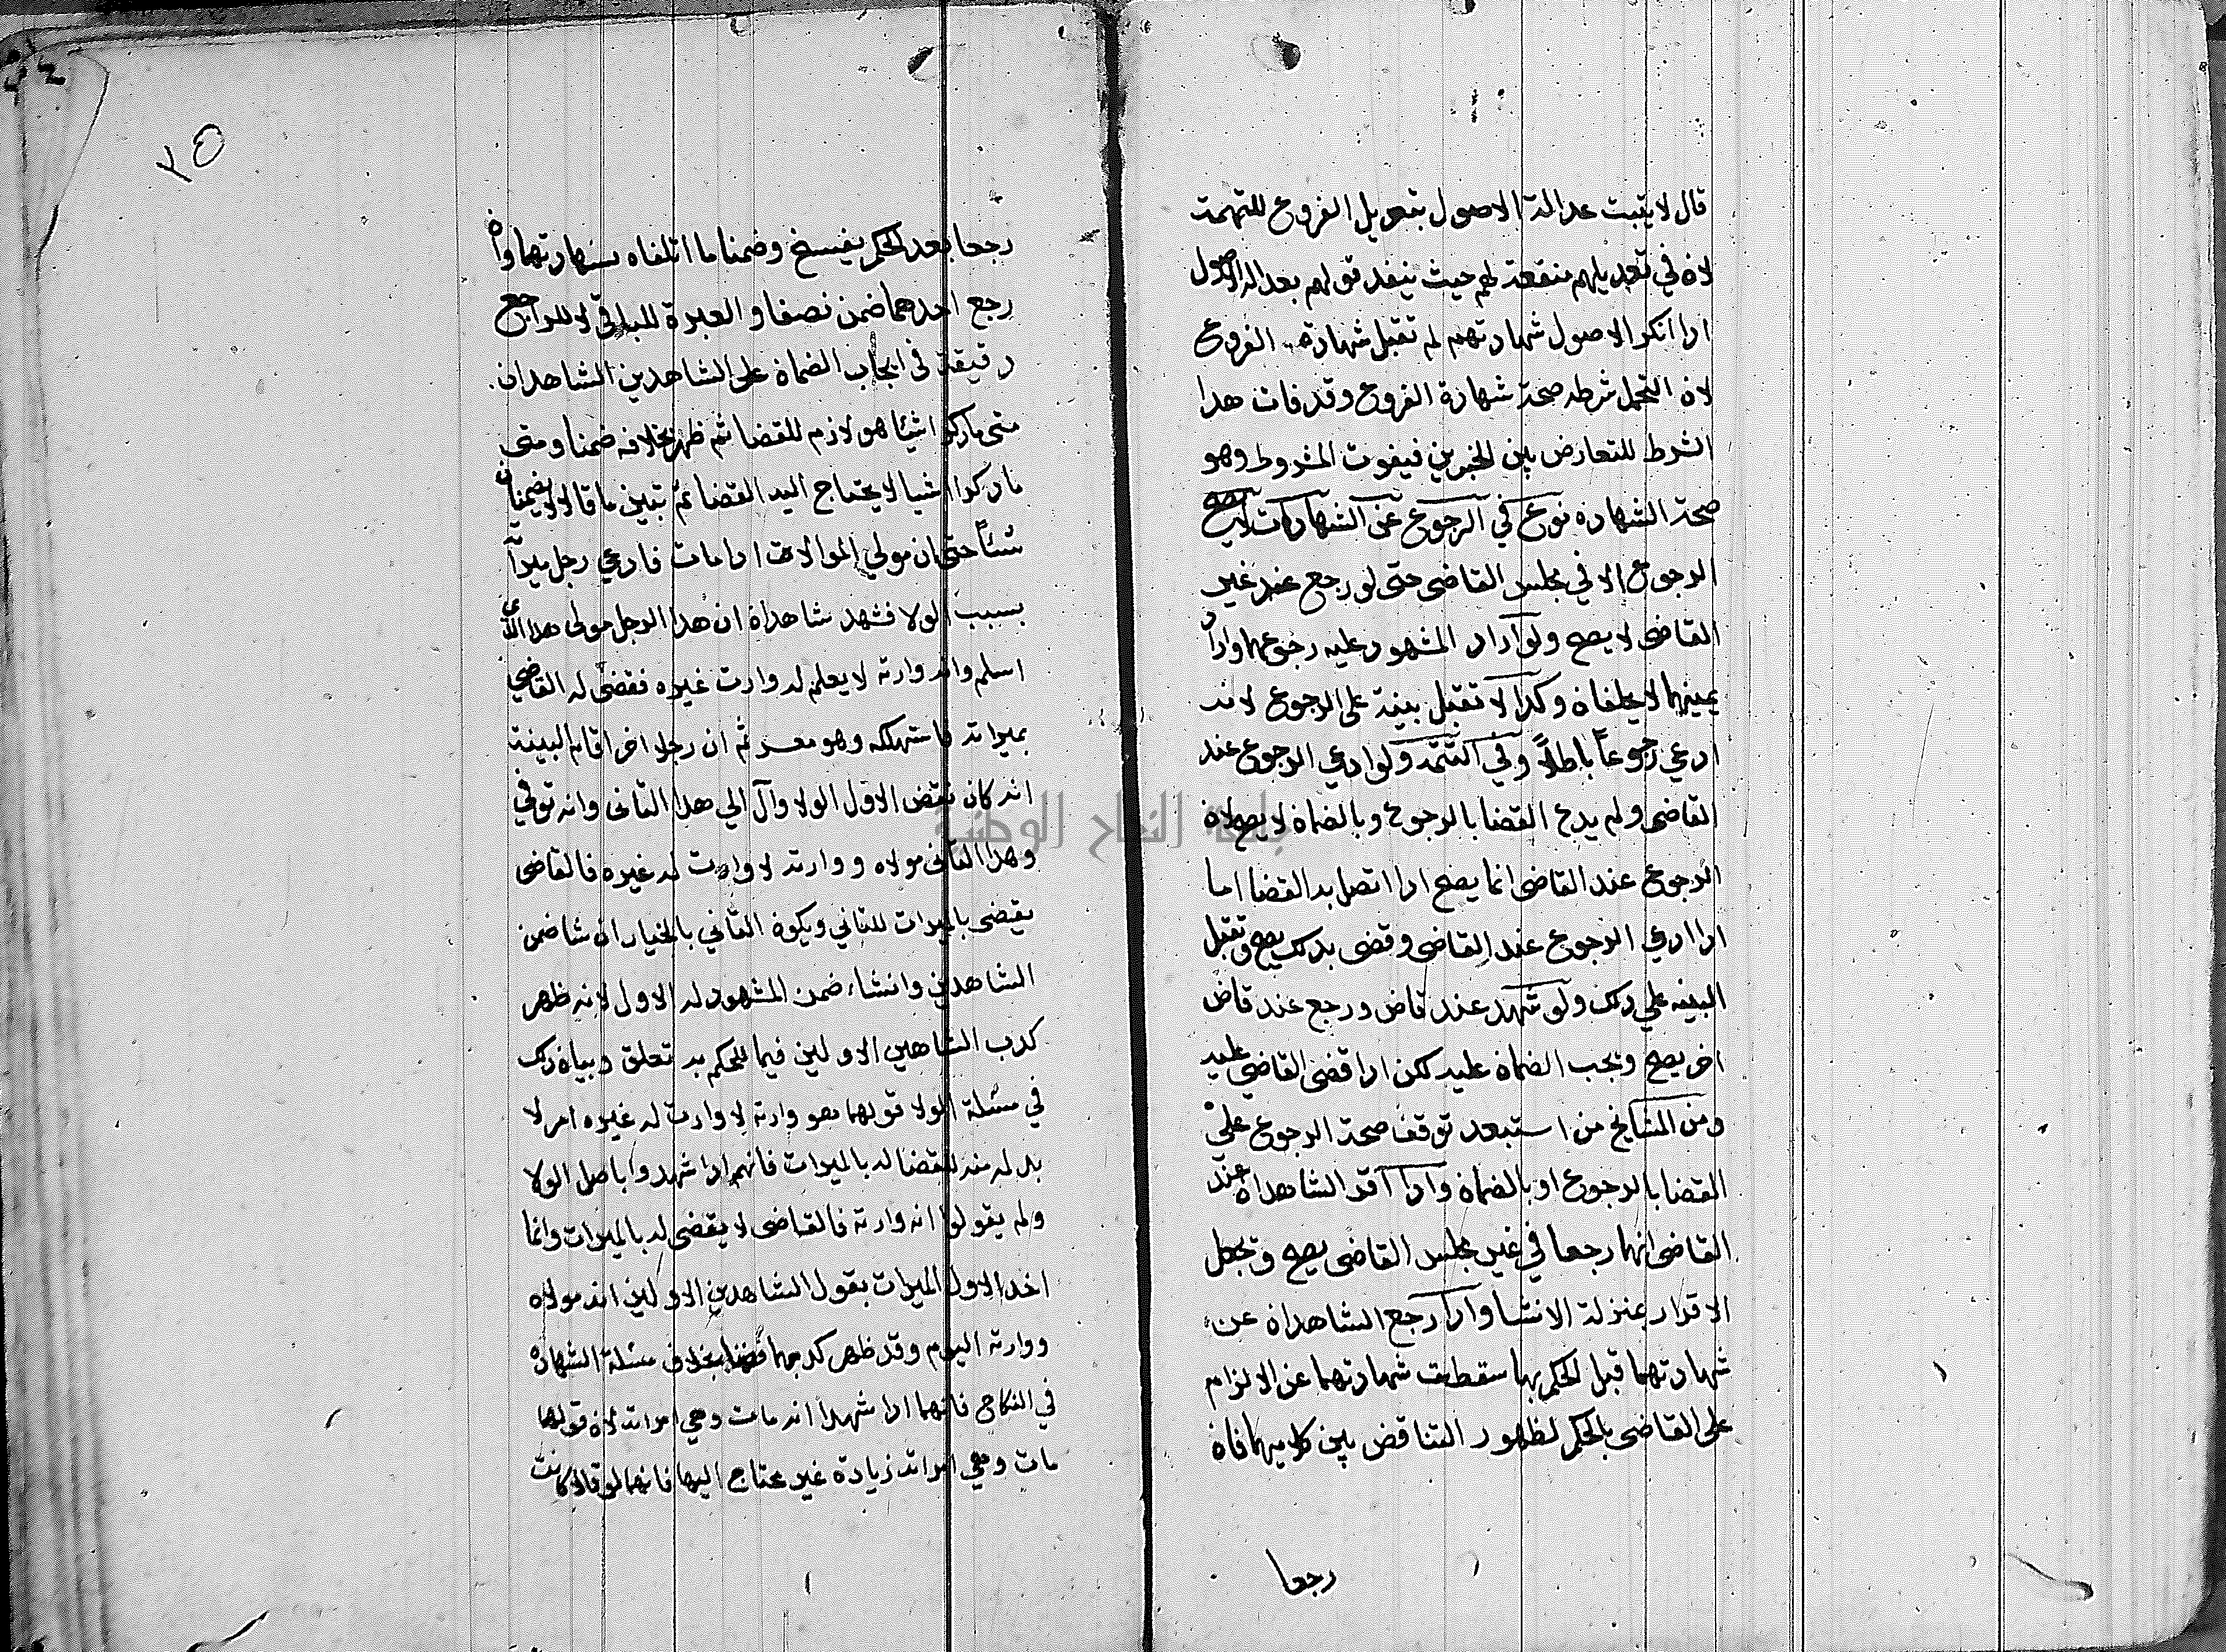 قال لا يثبت عدالة الاصول بتعديل الفروع للتهمت
لان في تعديلهم منفعة لهم حيث ينفد قولهم بعدالة الاصول
ادا انكر الاصول شهادتهم لم تقبل شهادة الفروع
لان التحمل شرط صحة شهادة الفروع وقد فات هدا
الشرط للتعارض بين الخبرين فيفوت المشروط وهو
صحة الشهاده نوع في الرجوع عن الشهادات لا يصح
الرجوع الا في مجلس القاضى حتى لو رجع عند غير
القاضى لا يصح ولو اراد المشهود عليه رجوعهما واراد
يمينهما لا يحلفان وكدا لا تقبل بينة على الرجوع لانه
ادعي رجوعاً باطلاً وفي التتمه ولو ادعي الرجوع عند
القاضى ولم يدع القضا بالرجوع وبالضمان لا يصح لان
الرجوع عند القاضى انما يصح ادا اتصل به القضا اما
ادا ادعي الرجوع عند القاضى وقضى بدلك يصح وتقبل
البينه علي دلك ولو شهد عند قاض ورجع عند قاض
اخر يصح ويجب الضمان عليه لكن ادا قضى القاضي عليه
ومن المشايخ من استبعد توقف صحة الرجوع علي
القضا بالرجوع او بالضمان وادا اقر الشاهدان عند
القاضى انهما رجعا في غير مجلس القاضى يصح وتجعل
الاقرار بمنزلة الانشا وادا رجع الشاهدان عن
شهادتهما قبل الحكم بها سقطت شهادتهما عن الالزام
على القاضى بالحكم لظهور التناقض بين كلاميهما فان
رجعا
٢٥
رجعا بعد الحكم يفسخ وضمنا ما اتلفاه بشهادتهما وان
رجع احدهما ضمن نصفا والعبرة للباقي لا للراجع
دقيقة في ايجاب الضمان على الشاهدين الشاهدان
متى ما دكرا شيئا هو لازم للقضا ثم ظهر بخلافه ضمنا ومتى
ما دكرا شيا لا يحتاج اليه القضا ثم تبين ما قالا لا يضمنان
شئاً حتى ان مولي الموالات ادا مات فادعي رجل ميراثه
بسبب الولا فشهد شاهدان ان هدا الرجل مولى هدا الدي
اسلم وانه وارثه لا يعلم له وارث غيره فقضى له القاضي
بميراثه فاستهلكه وهو معسر ثم ان رجلا اخر اقام البينة
انه كان نقض الاول الولا وآل الي هدا الثانى وانه توفي
وهدا الثانى مولاه ووارثه لا وارث له غيره فالقاضى
يقضى بالميراث للثاني ويكون الثاني بالخيار ان شا ضمن
الشاهدين وانشاء ضمن المشهود له الاول لانه ظهر
كدب الشاهين الاولين فيما للحكم به تعلق وبيان دلك
في مسئلة الولا قولهما هو وارثه لا وارث له غيره امر لا
بد له منه للقضا له بالميراث فانهم ادا شهدوا باصل الولا
ولم يقولوا انه وارثه فالقاضى لا يقضى له بالميراث وانما
اخد الاول الميراث بقول الشاهدين الاولين انه مولاه
ووارثه اليوم وقد ظهر كدبهما فضمنا بخلاف مسئلة الشهادة
في النكاح فانهما ادا شهدا انه مات وهي امراته لان قولهما
مات وهي امراته زيادة غير محتاج اليها فانهما لو قالا كانت
جامعة النجاح الوطنية